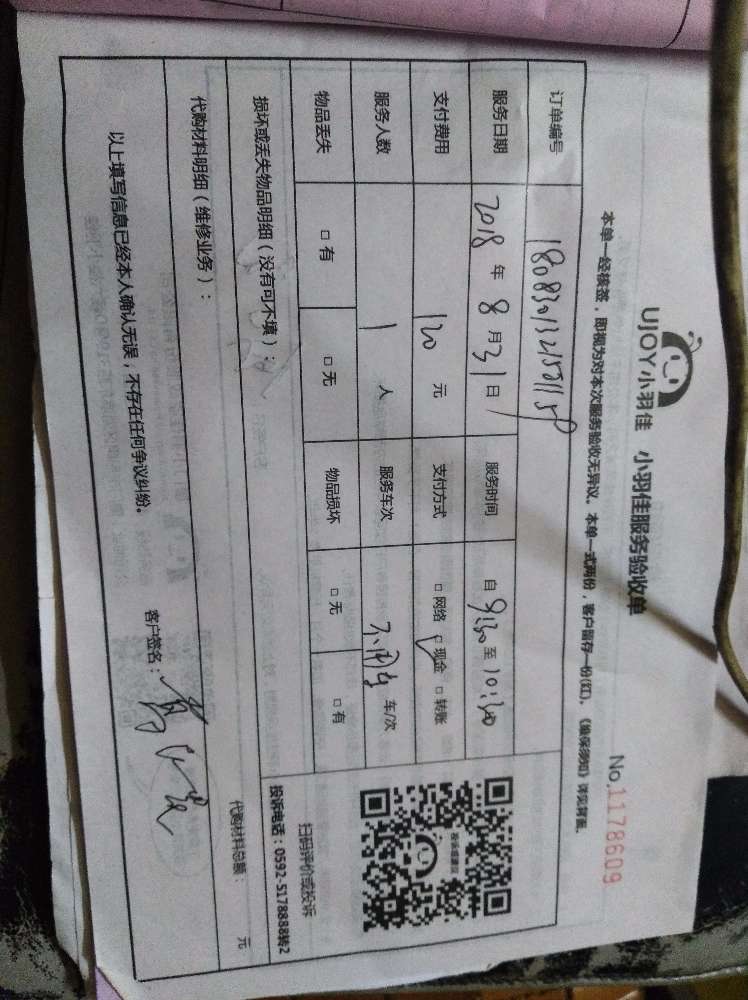 UJOY小羽佳 小羽佳服务验收单
No.1178609
本单一经核签，即视为对本次服务验收无异议。本单一式两份，客户留存一份(红)。《维保须知》详见背面。
订单编号
服务日期 2018 年 8 月 31 日 服务时间 自 9:30 至 10:30
支付费用 120 元 支付方式 □网络 □现金 □转账
服务人数 1 人 服务车次 不用车 车/次
物品丢失 □有 □无 物品损坏 □无 □有
投诉或建议
扫码评价或投诉
投诉电话：0592-5178888转2
损坏或丢失物品明细（没有可不填）：
代购材料明细（维修业务）： 代购材料总额： 元
以上填写信息已经本人确认无误，不存在任何争议纠纷。 客户签名：